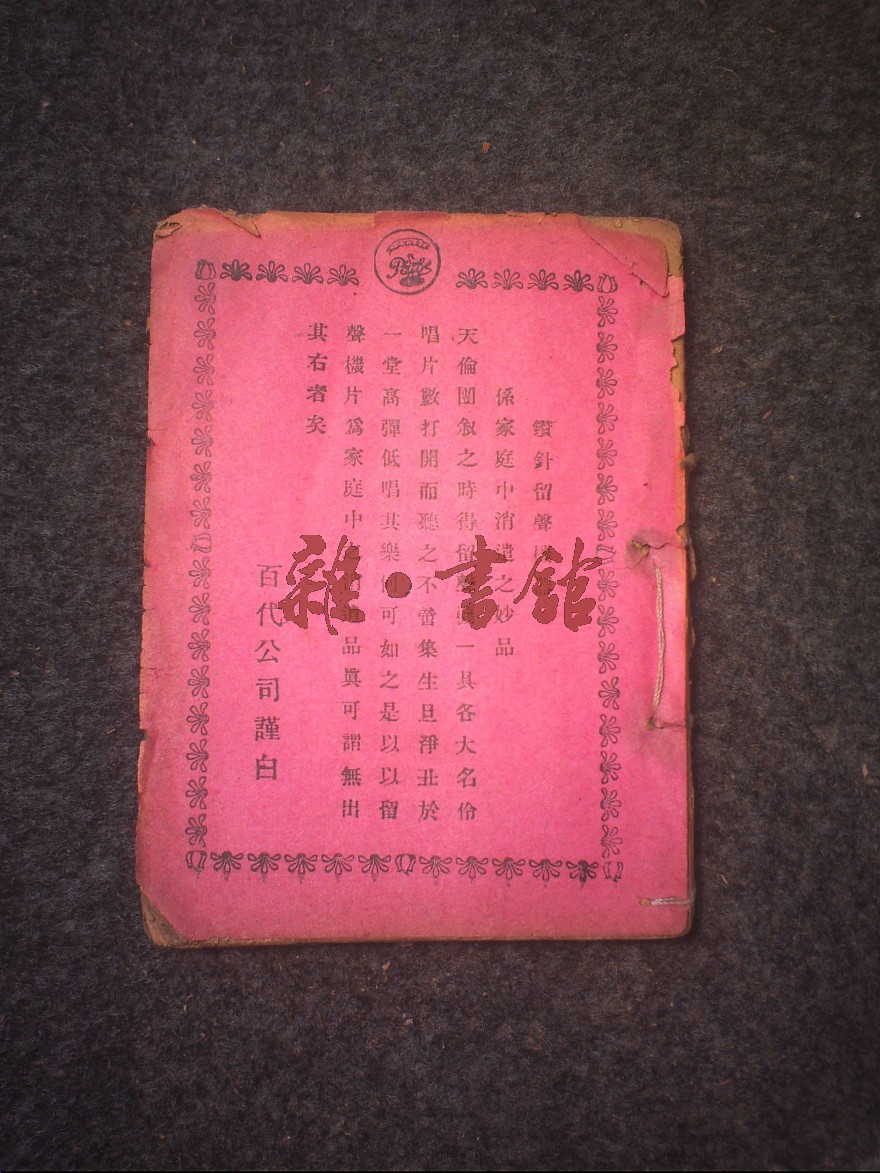 Pathé
鑽針留聲機
係家庭中消遣之妙品
天倫團敘之時得留聲機一具各大名伶
唱片數打開而聽之不啻集生旦淨丑於
一堂高彈低唱其樂何可如之是以以留
聲機片爲家庭中品眞可謂無出
其右者矣
百代公司謹白
雜·書館